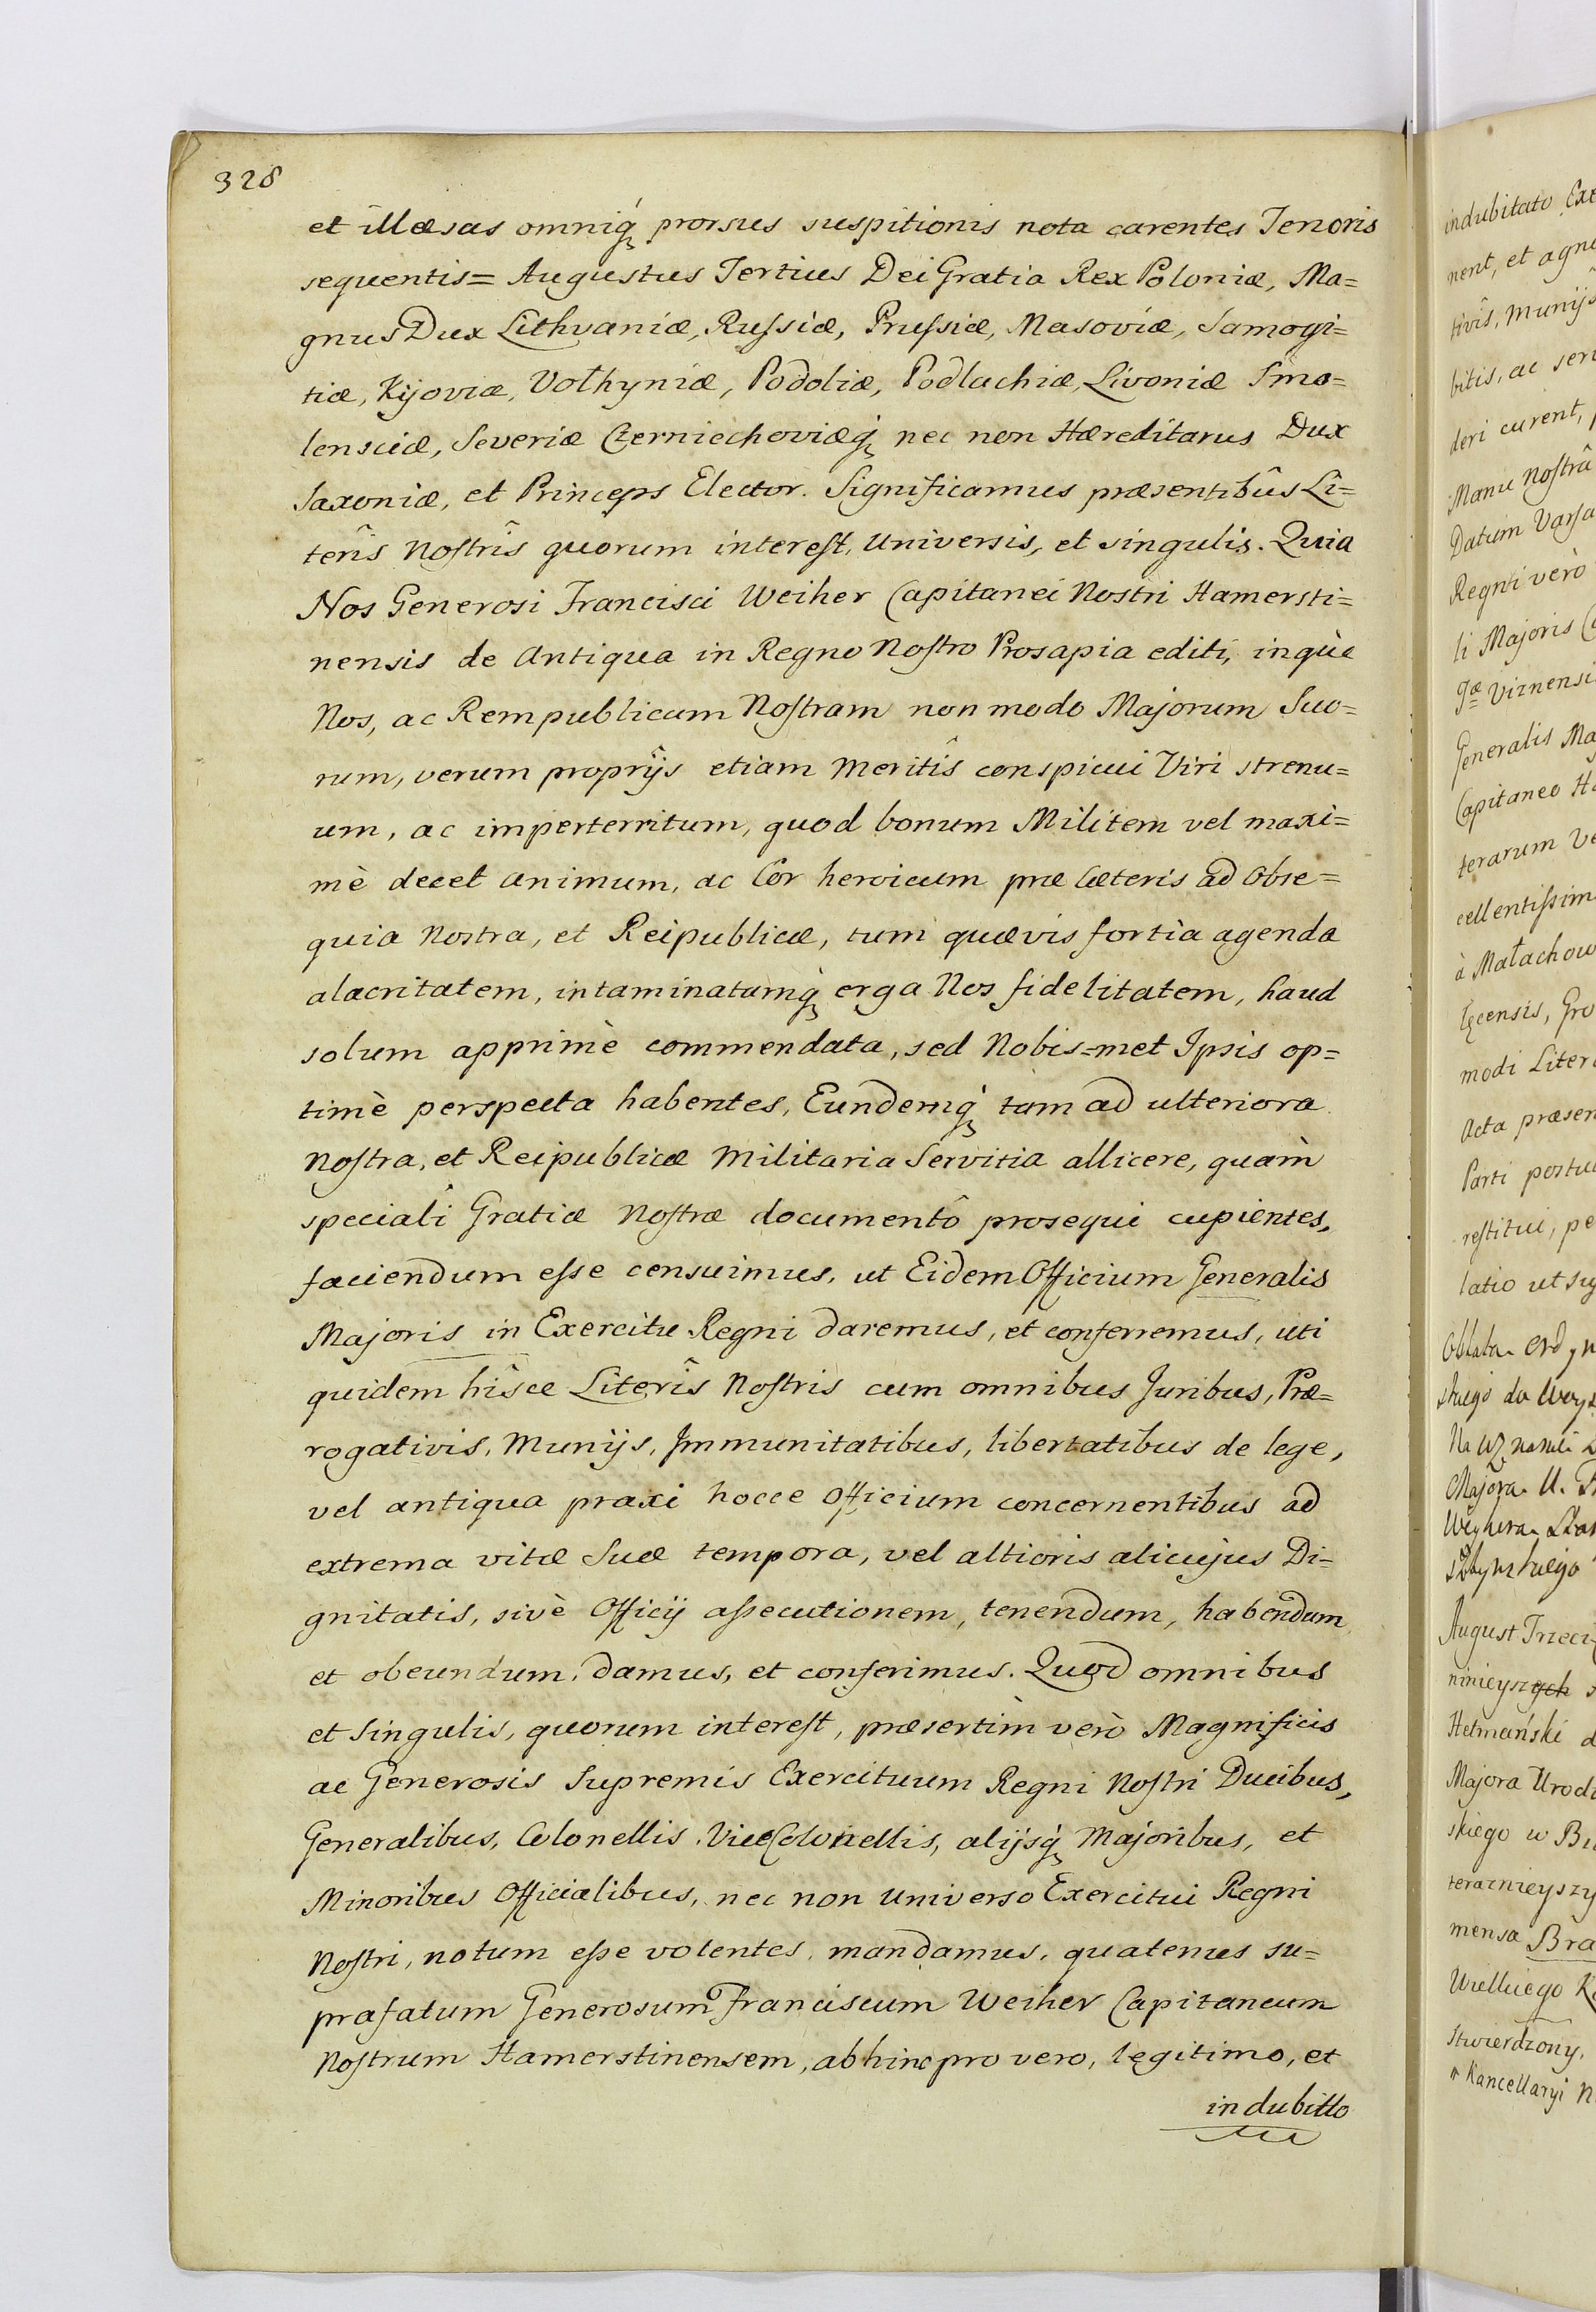 328
et illæsas omniq́ꝫ prorsus suspitionis nota carentes Tenoris
sequentis= Augustus Tertius Dei Gratia Rex Poloniæ, Ma=
gnus Dux Lithvaniæ, Rußiæ, Prußiæ, Masoviæ, Samogi=
tiæ, Kijoviæ, Vołhyniæ, Podoliæ, Podlachiæ, Livoniæ Smo=
lensciæ, Severiæ Czerniechoviæq́ꝫ nec non Hæreditarus Dux
Saxoniæ, et Princeps Elector. Significamus præsentibûs Li=
terîs Nostrîs quorum interest, Universis, et singulis. Quia
Nos Generosi Francisci Weiher Capitanei Nostri Hamersti=
nensis de Antiqua in Regno Nostro Prosapia editi, inquè
Nos, ac Rempublicam Nostram non modo Majorum Suo=
rum, verum proprijs etiam Meritîs conspicui Viri strenu=
um, ac imperterritum, quod bonum Militem vel maxi=
mè decet animum, ac Cor heroicum præ Cæteris ad Obse=
quia Nostra, et Reipublicæ, tum quævis fortia agenda
alacritatem, intaminatamq́ꝫ erga Nos fidelitatem, haud
solum apprimè commendata, sed Nobis=met Ipsis op=
timè perspecta habentes, Eundemq́ꝫ tam ad ulteriora
Nostra, et Reipublicæ Militaria Servitia allicere, quàm
specialî Gratiæ Nostræ documentô prosequi cupientes,
faciendum eße censuimus, ut Eidem Officium Generalis
Majoris in Exercitu Regni daremus, et conferremus, uti
quidem hîsce Literîs Nostris cum omnibus Juribus, Præ=
rogativis, Munijs, Immunitatibus, libertatibus de lege,
vel antiqua praxi hocce Officium concernentibus ad
extrema vitæ Suæ tempora, vel altioris alicujus Di=
gnitatis, sivè Officij aßecutionem, tenendum, habendum
et obeundum, damus, et conferimus. Quod omnibus
et Singulis, quorum interest, præsertim verò Magnificis
ac Generosis Supremis Exercituum Regni Nostri Ducibus,
Generalibus, Colonellis, ViceColonellis, alijsq́ꝫ Majoribus, et
Minoribus Officialibus, nec non Universo Exercitui Regni
Nostri, notum eße volentes, mandamus, quatenus su=
prafatum Generosum Franciscum Weiher Capitaneum
Nostrum Hamerstinensem, abhinc pro vero, legitimo, et
indubitto
indubitato
nent, et
tivîs, Munijs
bitis, ac
deri curent,
Manu Nostrâ
Datum
Regni verò
li Majoris
Generalis
Capitaneo
terarum
à Małachow
modi
Acta
Parti
restitui,
latio ut
Oblata
August
Hetmański
Majora
skiego w
mensa
Wielkiego
stwierdzony.